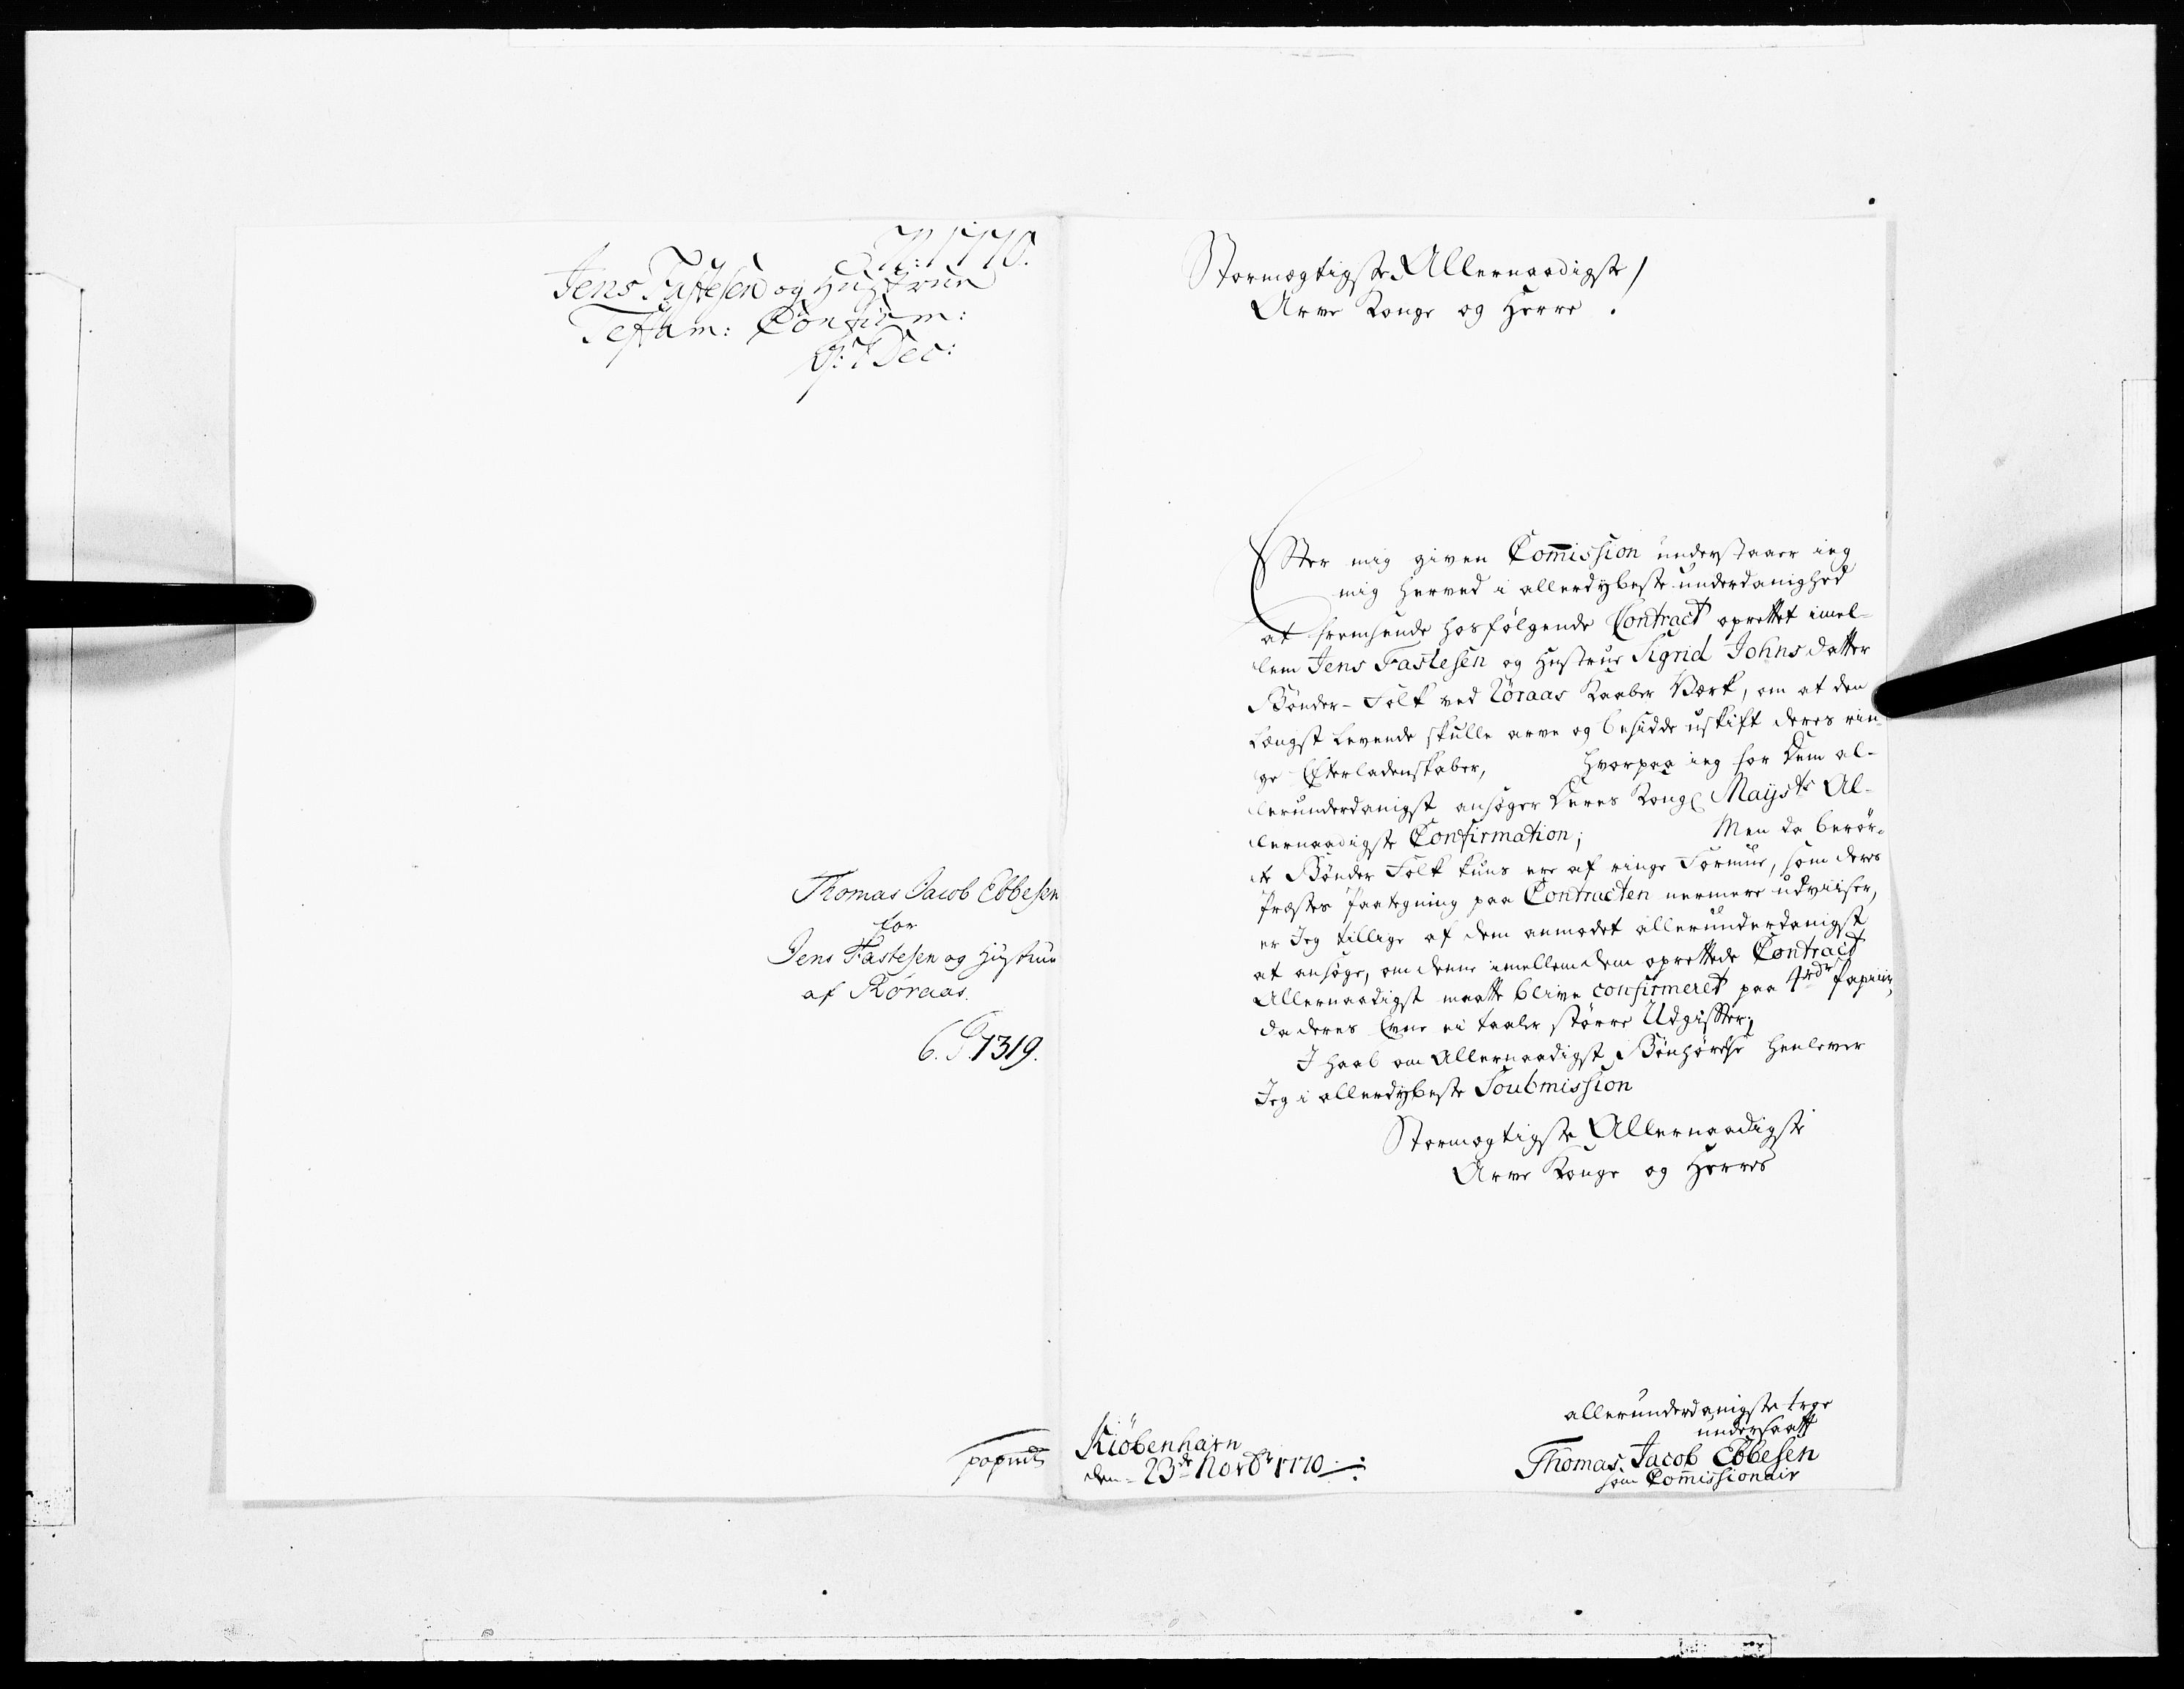 N: 1770.
Jens Fastesen og Hustrue
Testam: Confirm:
d: 7 Dec:
Thomas Jacob Ebbesen
for
Jens Fastesen og Hustrue
af Röraas.
1319.
Stormægtigste Allernaadigste
Arve Konge og Herre.
Efter mig given Com̄ission understaaer ieg
mig herved i allerdybeste underdanighed
at fremsende hosfølgende Contract oprettet imel-
lem Jens Fastesen og Hustrue Sigrid Johnsdatter
Bønder-Folk ved Röraas Kaaber Værk, om at den
Længst Levende skulle arve og besidde uskift deres rin-
ge Efterladenskaber, hvorpaa ieg for dem al-
lerunderdanigst ansøger Deres Kongl Mayts Al-
lernaadigste Confirmation; Men da berør-
te Bønder Folk kuns ere af ringe Formue, som deres
Præstes paategning paa Contracten nermere udviiser,
er Jeg tillige af dem anmodet allerunderdanigst
at ansøge, om denne imellem dem oprettede Contract
Allernaadigst maatte blive confirmeret paa papiir,
da deres Evne ei taaler større Udgifter;
I haab om Allernaadigst Bønhørelse henlever
Jeg i allerdybeste Soubmission
Stormægtigste Allernaadigste
Arve Konge og Herres
Kiöbenhavn
den 23de Novbr 1770
allerunderdanigste troe
undersaatt
Thomas Jacob Ebbesen
som Com̄issionair